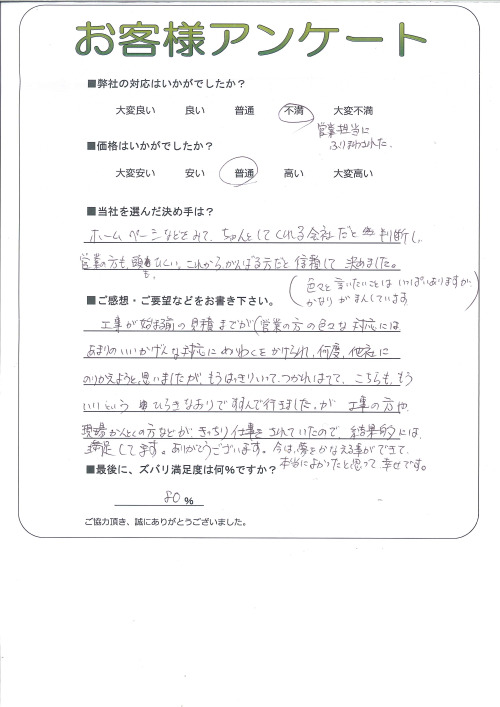 お客様アンケート
■弊社の対応はいかがでしたか？
大変良い 良い 普通 不満 大変不満
営業担当に
ふりまわされた。
■価格はいかがでしたか？
大変安い 安い 普通 高い 大変高い
■当社を選んだ決め手は？
ホームページなどをみて、ちゃんとしてくれる会社だと 判断し、
営業の方も、頭もひくい、これからがんばる方だと信頼して 決めました。
(色々と言いたいことは いっぱいありますが、
かなり がまんしています)
■ご感想・ご要望などをお書き下さい。
工事が始まる前の見積までが(営業の方の色々な対応には
あまりのいいかげんな対応に めいわくをかけられ、何度、他社に
のりかえようと思いましたが もうはっきりいって、つかれはてて、こちらも、もう
いいという ひらきなおりですすんで行きました。が 工事の方や
現場かんとくの方などが、きっちり仕事をされていたので、結果的には、
満足してます。ありがとうございます。今は、夢をかなえる事ができて、
本当によかったと思って 幸せです。
■最後に、ズバリ満足度は何％ですか？
80 ％
ご協力頂き、誠にありがとうございました。